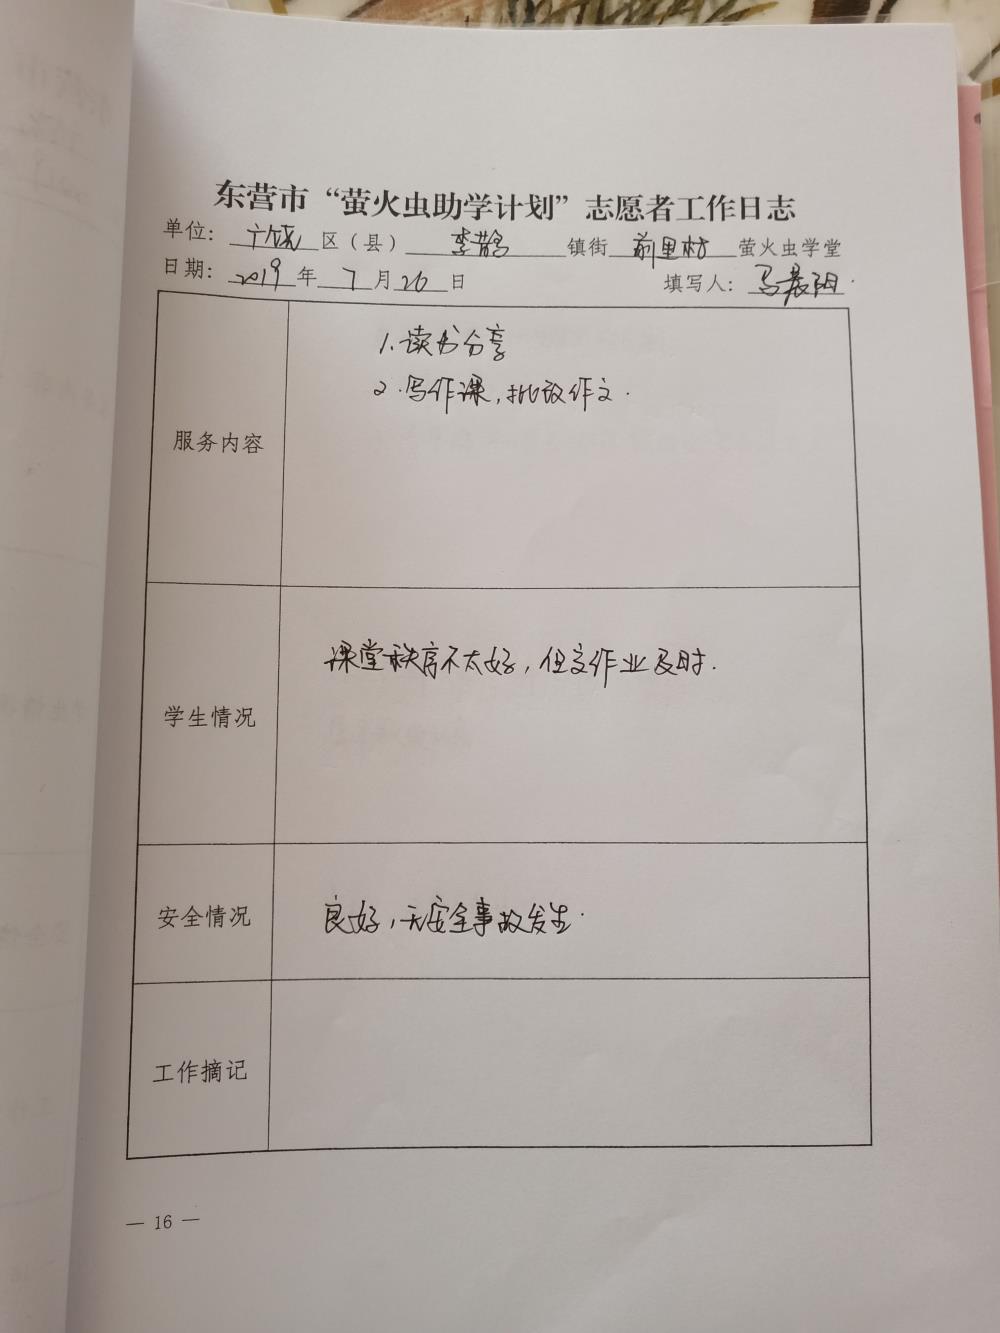 东营市“萤火虫助学计划”志愿者工作日志
单位：广饶区（县）李鹊镇街前里村萤火虫学堂
日期：2019年7月26日 填写人：马晨阳
服务内容
1.读书分享
2.写作课，批改作文.
学生情况
课堂秩序不太好，但交作业及时.
安全情况
良好，无安全事故发生.
工作摘记
— 16 —